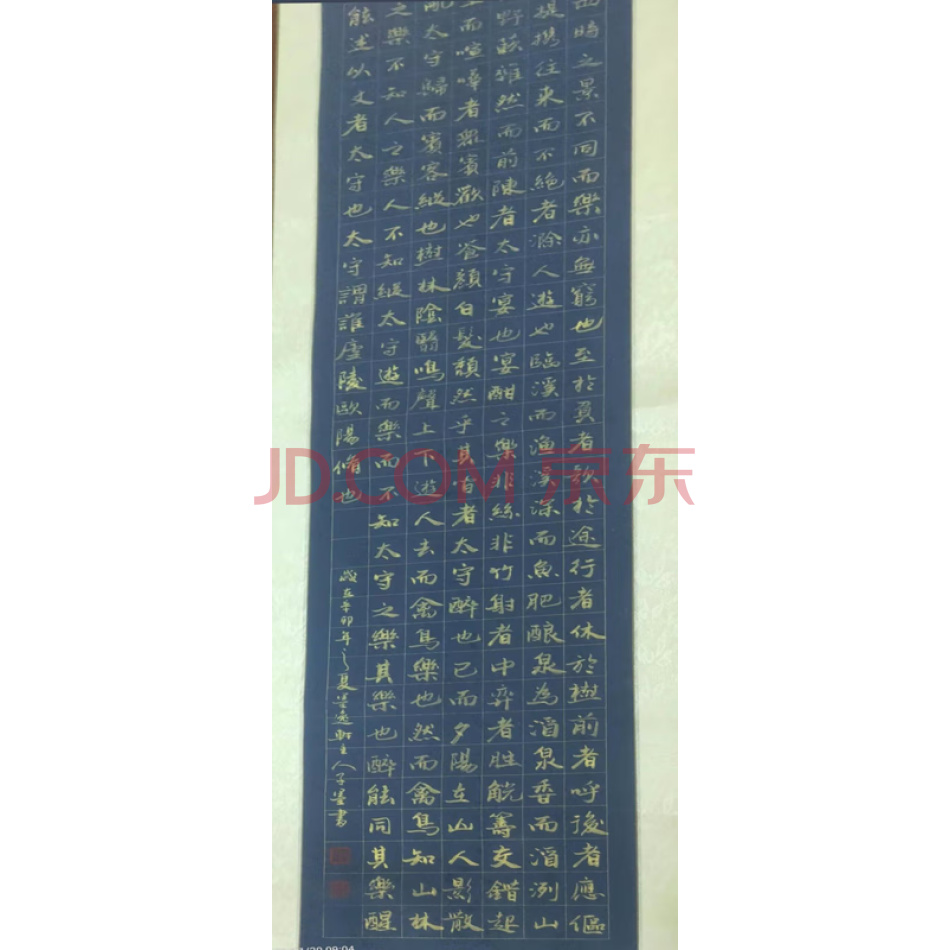 時之景不同而樂亦無窮也至於負者歌於途行者休於樹前者呼後者應傴
提携往來而不絶者滁人遊也臨溪而漁溪深而魚肥釀泉為酒泉香而酒洌山
野蔌雜然而前陳者太守宴也宴酣之樂非絲非竹射者中弈者胜觥籌交錯起
而喧嘩者衆賓歡也蒼顔白髮頽然乎其首者太守醉也已而夕陽在山人影散
亂太守歸而賓客縱也樹林陰翳鳴聲上下遊人去而禽鳥樂也然而禽鳥知山林
之樂不知人之樂人不知縱太守遊而樂而不知太守之樂其樂也醉能同其樂醒
能述以文者太守也太守謂誰廬陵歐陽脩也
歲在辛卯年之夏墨逸軒主人子墨書
JDCOM 京东